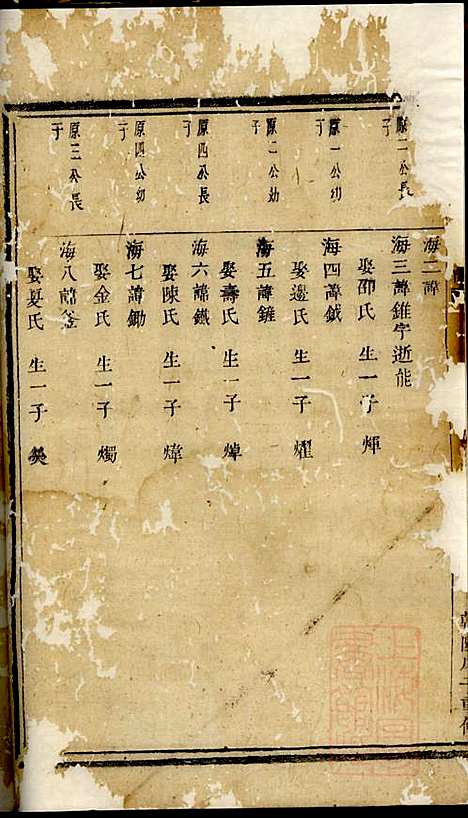 海二諱
原二公長子
海三諱錐字逝能
娶邵氏 生一子 煇
原一公幼子
海四諱鉞
娶邊氏 生一子 燿
原二公幼子
海五諱鏟
娶壽氏 生一子 焯
原四公長子
海六諱鐵
娶陳氏 生一子 煒
原四公幼子
海七諱鋤
娶金氏 生一子 燭
原三公長子
海八諱釜
娶夏氏 生一子